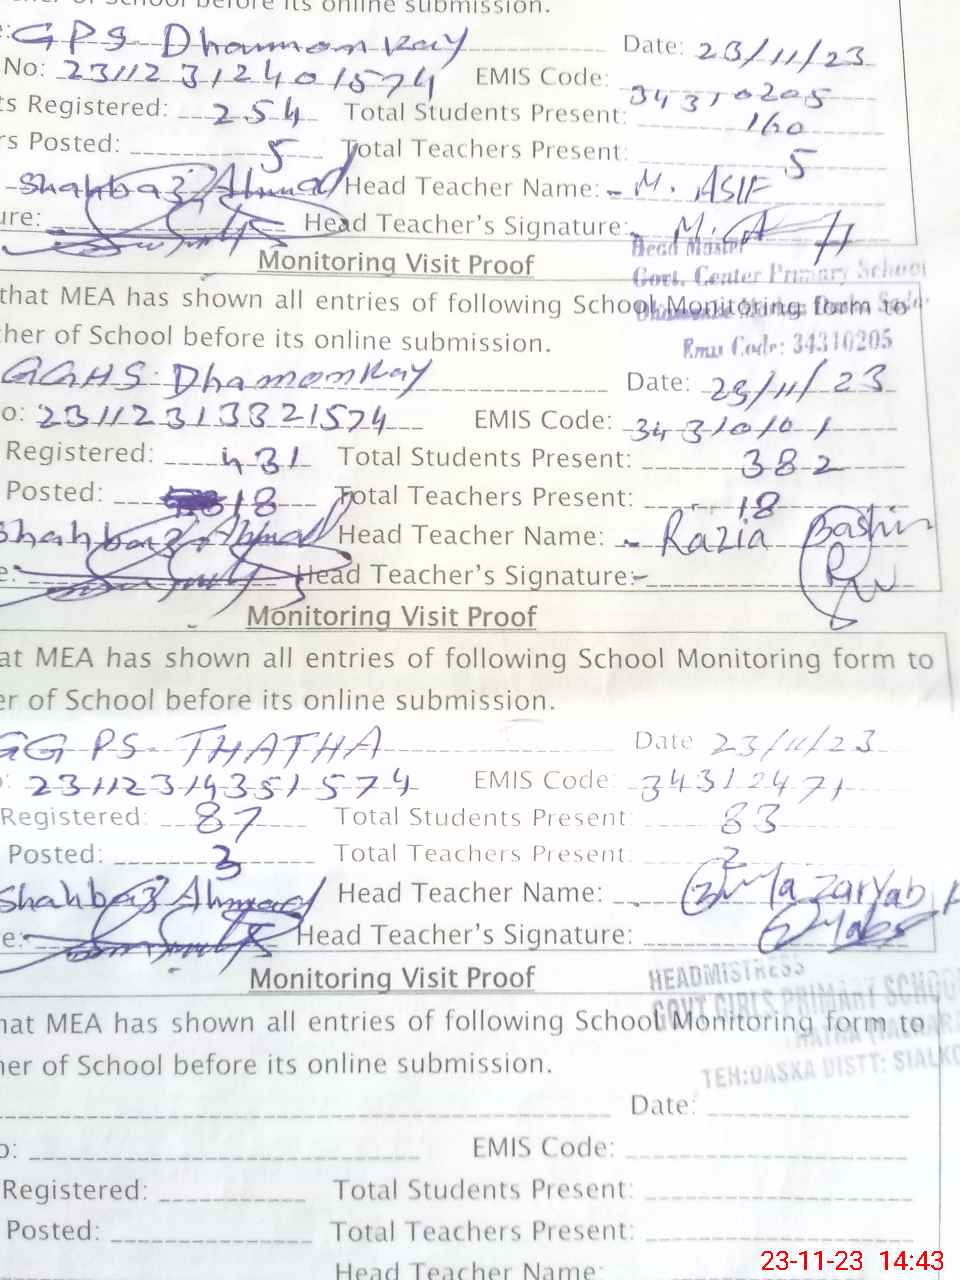 of School before its online submission.
: GPS Dhamonkay Date: 23/11/23
No: 23112312401574 EMIS Code: 34310205
ts Registered: 254 Total Students Present: 160
rs Posted: 5 Total Teachers Present: 5
Shahbaz Ahmad Head Teacher Name: M. ASIF
ure: Head Teacher's Signature:
Head Master
Monitoring Visit Proof
Govt. Center Primary School
that MEA has shown all entries of following School Monitoring form to
her of School before its online submission.
Emis Code: 34310205
GGHS Dhamonkay Date: 23/11/23
o: 23112313321574 EMIS Code: 34310101
Registered: 431 Total Students Present: 382
Posted: 18 Total Teachers Present: 18
Shahbaz Ahmad Head Teacher Name: Razia Bashir
e: Head Teacher's Signature:
Monitoring Visit Proof
at MEA has shown all entries of following School Monitoring form to
er of School before its online submission.
GGPS THATHA Date 23/11/23
: 23112314351574 EMIS Code: 34312471
Registered: 87 Total Students Present: 83
Posted: 3 Total Teachers Present: 2
Shahbaz Ahmad Head Teacher Name: Zaryab
e: Head Teacher's Signature:
Monitoring Visit Proof
HEADMISTRESS
GOVT GIRLS PRIMARY SCHOO
hat MEA has shown all entries of following School Monitoring form to
THATHA
her of School before its online submission.
TEH:DASKA DISTT: SIALKO
Date:
o: EMIS Code:
Registered: Total Students Present:
Posted: Total Teachers Present:
Head Teacher Name:
23-11-23 14:43